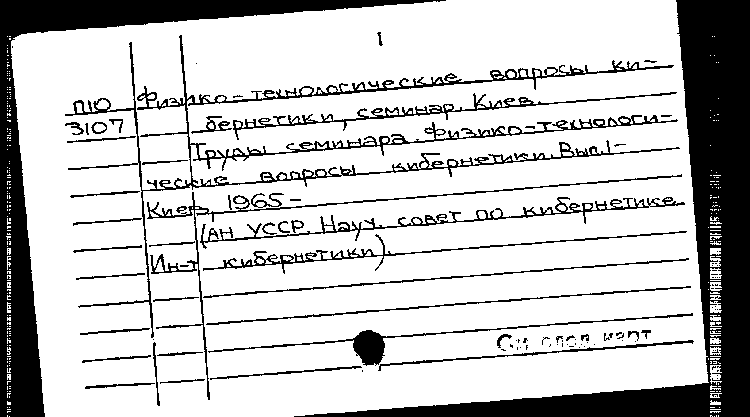 1
П10 Физико-технологические вопросы ки-
3107 бернетики, семинар. Киев.
Труды семинара. Физико-технологи-
ческие вопросы кибернетики. Вып. 1-
Киев, 1965-
(АН УССР. Науч. совет по кибернетике
Ин-т кибернетики).
См след. карт